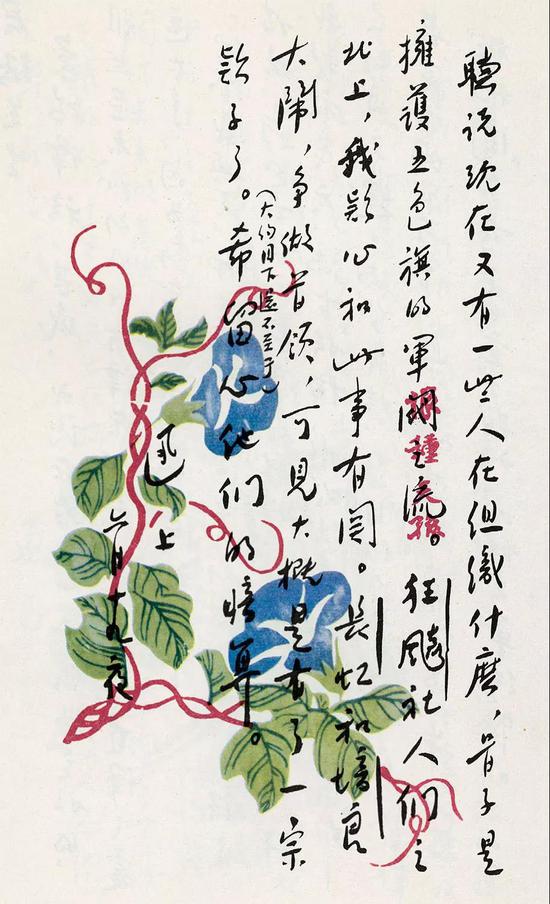 聽说现在又有一些人在组織什麽，骨子是
擁護五色旗的軍閥之流。狂飈社人們之
北上，我疑心和此事有関。長虹和培良
大鬧，争做首领，可見大概是有了一宗
欵子了。（大约目下還不至于）希留心他们的暗算。
迅 上
六月十九夜